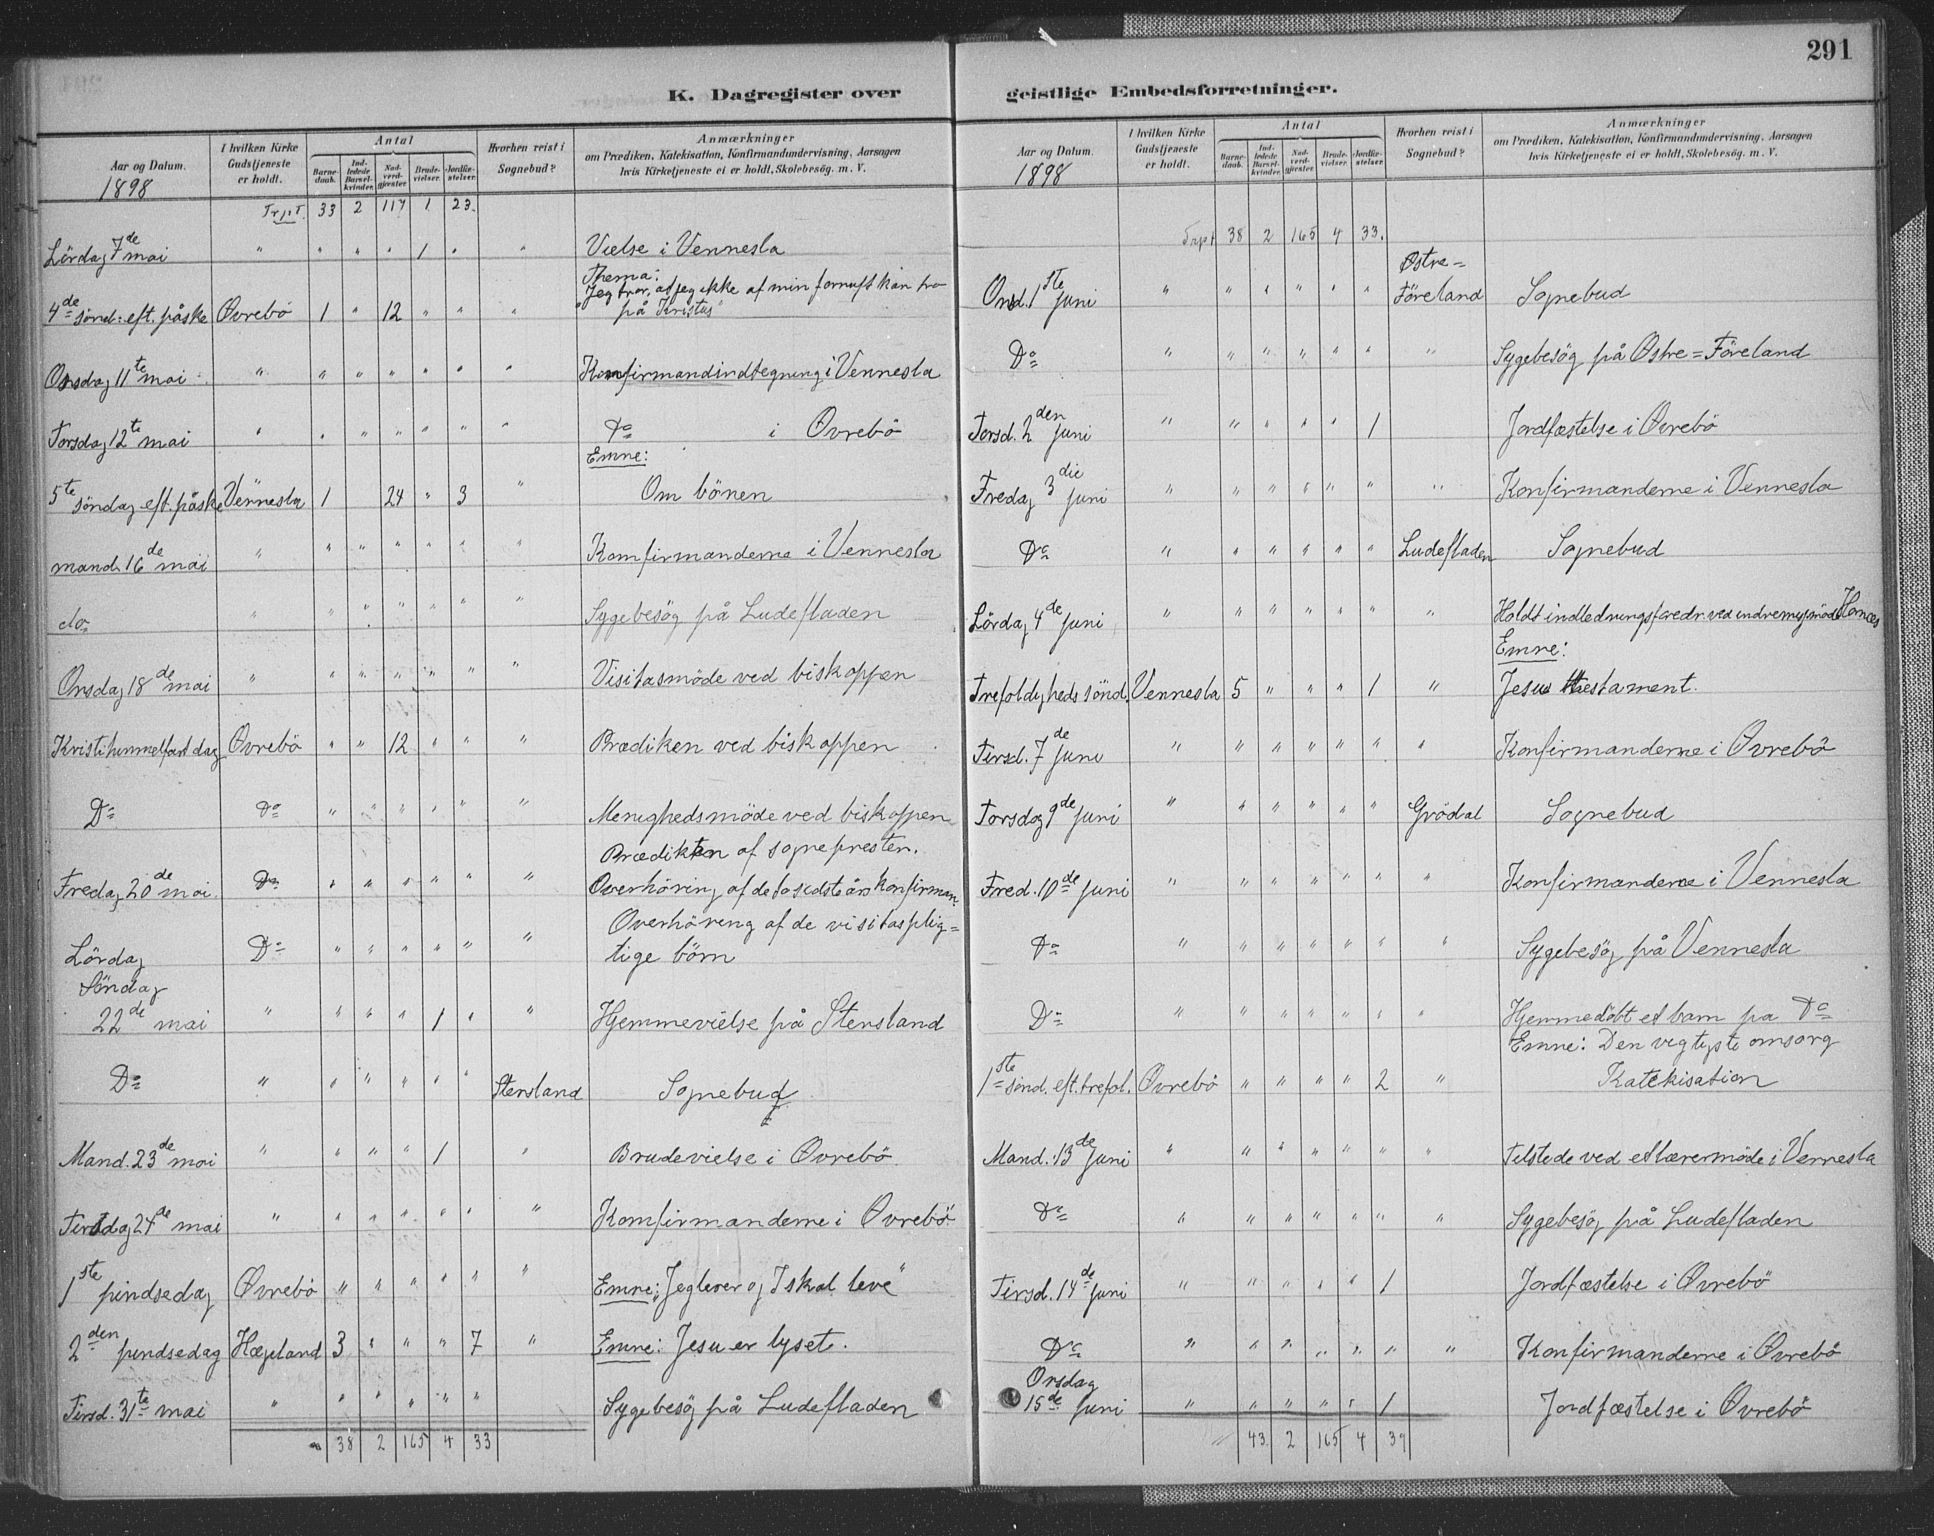 291
K. Dagregister over
Aar og Datum.
1898
I hvilken Kirke Gudstjeneste er holdt.
Antal
Barnedaab.
Indledede Barselkvinder.
Nadverdgjæster.
Brudevielser.
Jordfæstelser.
Hvorhen reist i Sognebud?
Anmærkninger
om Prædiken, Katekisation, Konfirmandundervisning, Aarsagen
hvis Kirketjeneste ei er holdt, Skolebesög. m. V.
Trpt. 33 2 117 1 23.
Lördag 7de mai " " " " 1 " " Vielse i Vennesla
Thema:
"Jeg tror, at jeg ikke af min fornuft kan tro
4de sönd: eft. påske Øvrebö 1 " 12 " " " på Kristus"
Onsdag 11te mai " " " " " " " Konfirmandindtegning i Vennesla
Torsdag 12te mai " " " " " " " Do i Øvrebö
Emne:
5te söndag eft. påske Vennesla 1 24 " 3 " Om bönen
mand. 16de mai " " " " " " " Konfirmanderne i Vennesla
do " " " " " " " Sygebesög på Ludefladen
Onsdag 18de mai " " " " " " " Visitasmöde ved biskoppen
Kristi himmelfart dag Øvrebö " " 12 " " " Prædiken ved biskoppen
Do Do " " " " " " Menighedsmöde ved biskoppen
Prædiken af sognepresten.
Fredag 20de mai. Do " " " " " " Overhöring af de to sidste års konfirman.
Overhöreng af de visitasplig=
Lördag Do " " " " " " tige börn
Söndag
22de mai " " " " 1 " " Hjemmevielse på Stensland
Do " " " " " " Stensland Sognebud
Mand. 23de mai " " " " 1 " Brudevielse i Øvrebö
Tirsdag 24de mai " " " " " " " Konfirmanderne i Øvrebö
1ste pindsedag Øvrebö " " " " " " Emne: "Jeg lever og I skal leve"
2den pindsedag Hægeland 3 " " " 7 " Emne: Jesu er lyset.
Tirsd. 31te mai " " " " " " Sygebesög på Ludefladen
" 38 2 165 4 33
geistlige Embedsforretninger.
Aar og Datum.
1898
I hvilken Kirke Gudstjeneste er holdt.
Antal
Barnedaab.
Indledede Barselkvinder.
Nadverdgjæster.
Brudevielser.
Jordfæstelser.
Hvorhen reist i Sognebud?
Anmærkninger
om Prædiken, Katekisation, Konfirmandundervisning, Aarsagen
hvis Kirketjeneste ei er holdt, Skolebesög. m. V.
Trpt 38 2 165 4 33.
Østre=
Onsd. 1ste juni " " " " " " Föreland Sognebud
Do " " " " " " " Sygebesög på Østre=Föreland
Torsd. 2den juni " " " " " 1 Jordfæstelse i Øvrebö
Fredag 3die juni " " " " " " " Konfirmanderne i Vennesla
Do " " " " " " Ludefladen Sognebud
Lördag 4de juni " " " " " " " Holdt indledningsforedr. ved indremisj.möde Homes
Emne:
Trefoldigheds sönd. Vennesla 5 " " " 1 " Jesu testament.
Tirsd. 7de juni " " " " " " " Konfirmanderne i Øvrebö
Torsdag 9de juni " " " " " " Grödal Sognebud
Fred. 10de juni " " " " " " " Konfirmanderne i Vennesla
Do " " " " " " " Sygebesög på Vennesla
Do " " " " " " " Hjemmedöbt et barn på Do
Emne: Den vigtigste omsorg
1ste sönd. eft. trefol. Øvrebö " " " " 2 " Katekisation
Mand. 13de juni " " " " " " " Tilstede ved et lærermöde i Vennesla
Do " " " " " " " Sygebesög på Ludefladen
Tirsd. 14de juni " " " " " 1 Jordfæstelse i Øvrebö
Do " " " " " " " Konfirmanderne i Øvrebö
Onsdag
15de juni " " " " " 1 Jordfæstelse i Øvrebö
" 43 2 165 4 39